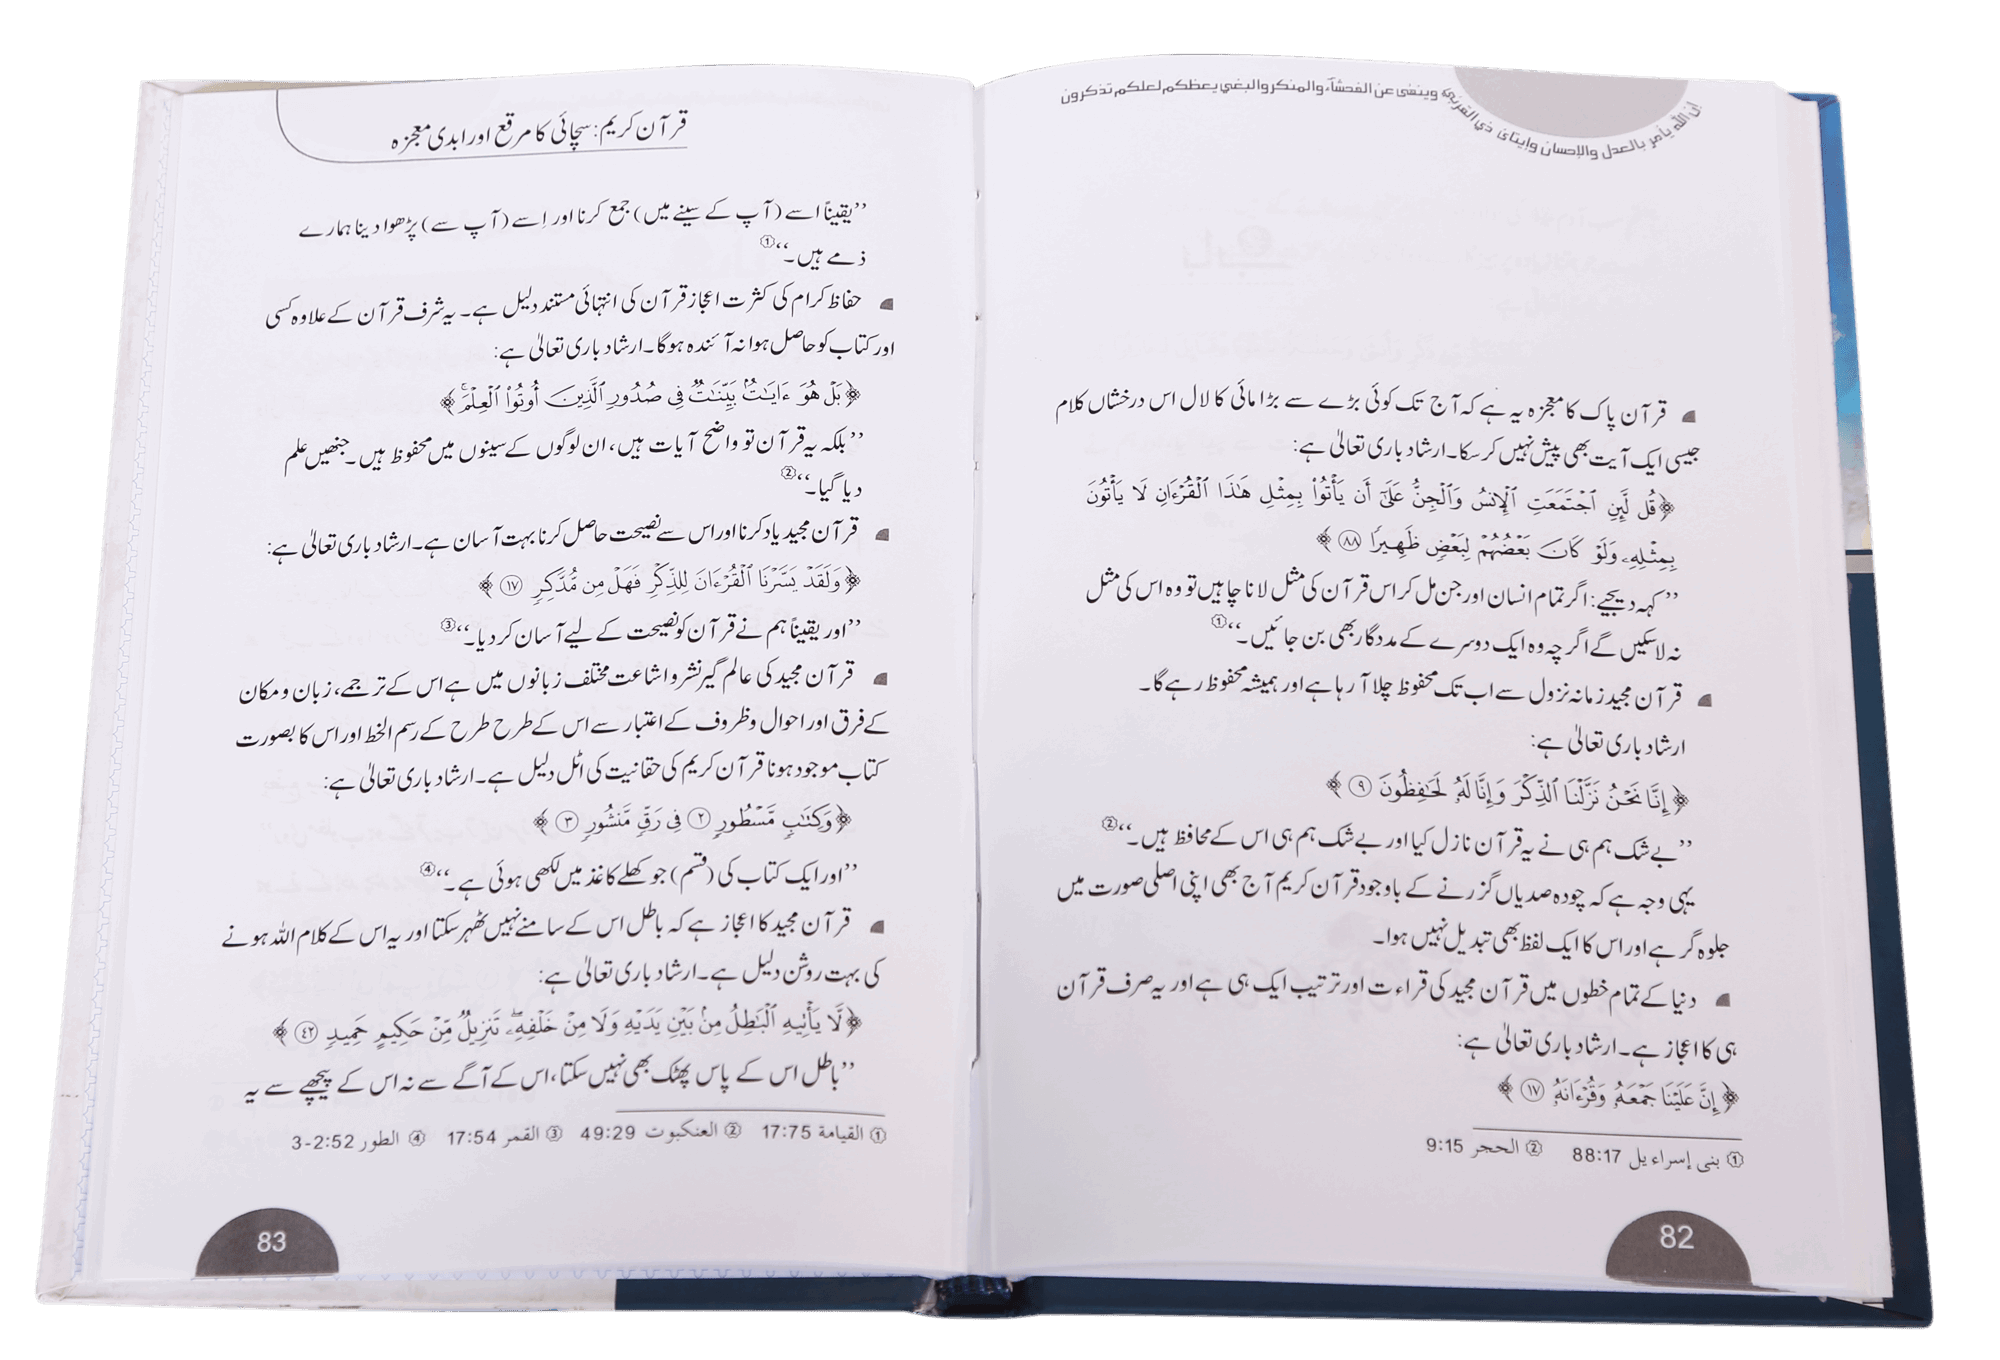 إن الله يأمر بالعدل والإحسان وإيتائ ذي القربى وينهى عن الفحشاء والمنكر والبغي يعظكم لعلكم تذكرون
قرآن پاک کا معجزہ یہ ہے کہ آج تک کوئی بڑے سے بڑا مائی کا لال اس درخشاں کلام
جیسی ایک آیت بھی پیش نہیں کر سکا۔ ارشاد باری تعالیٰ ہے:
﴿قُل لَّئِنِ ٱجْتَمَعَتِ ٱلْإِنسُ وَٱلْجِنُّ عَلَىٰٓ أَن يَأْتُوا۟ بِمِثْلِ هَٰذَا ٱلْقُرْءَانِ لَا يَأْتُونَ
بِمِثْلِهِۦ وَلَوْ كَانَ بَعْضُهُمْ لِبَعْضٍ ظَهِيرًا ٨٨﴾
’’کہہ دیجیے: اگر تمام انسان اور جن مل کر اس قرآن کی مثل لانا چاہیں تو وہ اس کی مثل
نہ لا سکیں گے اگرچہ وہ ایک دوسرے کے مددگار بھی بن جائیں۔‘‘①
قرآن مجید زمانہ نزول سے اب تک محفوظ چلا آ رہا ہے اور ہمیشہ محفوظ رہے گا۔
ارشاد باری تعالیٰ ہے:
﴿إِنَّا نَحْنُ نَزَّلْنَا ٱلذِّكْرَ وَإِنَّا لَهُۥ لَحَٰفِظُونَ ٩﴾
’’بے شک ہم ہی نے یہ قرآن نازل کیا اور بے شک ہم ہی اس کے محافظ ہیں۔‘‘②
یہی وجہ ہے کہ چودہ صدیاں گزرنے کے باوجود قرآن کریم آج بھی اپنی اصلی صورت میں
جلوہ گر ہے اور اس کا ایک لفظ بھی تبدیل نہیں ہوا۔
دنیا کے تمام خطوں میں قرآن مجید کی قراءت اور ترتیب ایک ہی ہے اور یہ صرف قرآن
ہی کا اعجاز ہے۔ ارشاد باری تعالیٰ ہے:
﴿إِنَّ عَلَيْنَا جَمْعَهُۥ وَقُرْءَانَهُۥ ١٧﴾
① بنی إسراءیل 88:17 ② الحجر 9:15
82
قرآن کریم: سچائی کا مرقع اور ابدی معجزہ
’’یقیناً اسے (آپ کے سینے میں) جمع کرنا اور اِسے (آپ سے) پڑھوا دینا ہمارے
ذمے ہیں۔‘‘①
حفاظ کرام کی کثرت اعجاز قرآن کی انتہائی مستند دلیل ہے۔ یہ شرف قرآن کے علاوہ کسی
اور کتاب کو حاصل ہوا نہ آئندہ ہوگا۔ ارشاد باری تعالیٰ ہے:
﴿بَلْ هُوَ ءَايَٰتٌۢ بَيِّنَٰتٌ فِى صُدُورِ ٱلَّذِينَ أُوتُوا۟ ٱلْعِلْمَ ۚ﴾
’’بلکہ یہ قرآن تو واضح آیات ہیں، ان لوگوں کے سینوں میں محفوظ ہیں۔ جنھیں علم
دیا گیا۔‘‘②
قرآن مجید یاد کرنا اور اس سے نصیحت حاصل کرنا بہت آسان ہے۔ ارشاد باری تعالیٰ ہے:
﴿وَلَقَدْ يَسَّرْنَا ٱلْقُرْءَانَ لِلذِّكْرِ فَهَلْ مِن مُّدَّكِرٍ ١٧﴾
’’اور یقیناً ہم نے قرآن کو نصیحت کے لیے آسان کر دیا۔‘‘③
قرآن مجید کی عالم گیر نشر و اشاعت مختلف زبانوں میں ہے اس کے ترجمے، زبان و مکان
کے فرق اور احوال و ظروف کے اعتبار سے اس کے طرح طرح کے رسم الخط اور اس کا بصورت
کتاب موجود ہونا قرآن کریم کی حقانیت کی اٹل دلیل ہے۔ ارشاد باری تعالیٰ ہے:
﴿وَكِتَٰبٍ مَّسْطُورٍ ٢ فِى رَقٍّ مَّنشُورٍ ٣﴾
’’اور ایک کتاب کی (قسم) جو کھلے کاغذ میں لکھی ہوئی ہے۔‘‘④
قرآن مجید کا اعجاز ہے کہ باطل اس کے سامنے نہیں ٹھہر سکتا اور یہ اس کے کلام اللہ ہونے
کی بہت روشن دلیل ہے۔ ارشاد باری تعالیٰ ہے:
﴿لَّا يَأْتِيهِ ٱلْبَٰطِلُ مِنۢ بَيْنِ يَدَيْهِ وَلَا مِنْ خَلْفِهِۦ ۖ تَنزِيلٌ مِّنْ حَكِيمٍ حَمِيدٍ ٤٢﴾
’’باطل اس کے پاس پھٹک بھی نہیں سکتا، اس کے آگے سے نہ اس کے پیچھے سے یہ
① القیامة 17:75 ② العنکبوت 49:29 ③ القمر 17:54 ④ الطور 52:2-3
83